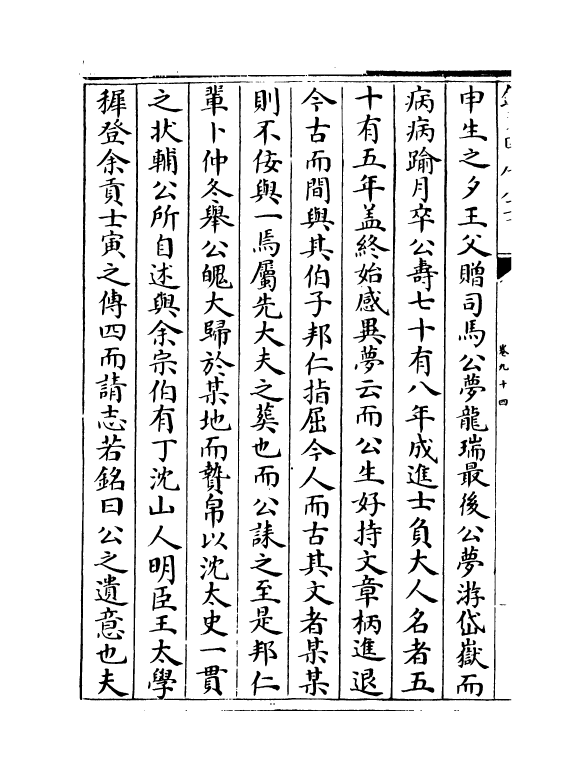 卷九十四
申生之夕王父贈司馬公夢龍瑞最後公夢游岱嶽而
病病踰月卒公壽七十有八年成進士負大人名者五
十有五年盖終始感異夢云而公生好持文章柄進退
今古而間與其伯子邦仁指屈今人而古其文者某某
則不佞與一焉屬先大夫之葬也而公誄之至是邦仁
輩卜仲冬舉公魄大歸於某地而贄帛以沈太史一貫
之狀輔公所自述與余宗伯有丁沈山人明臣王太學
穉登余貢士寅之傳四而請志若銘曰公之遺意也夫